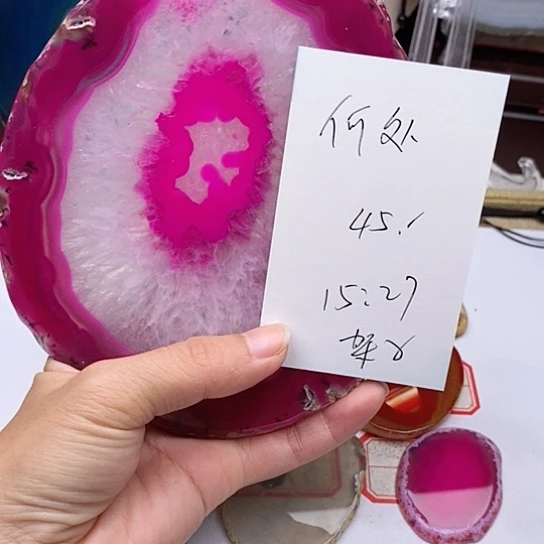 何处
45.1
15:27
架2